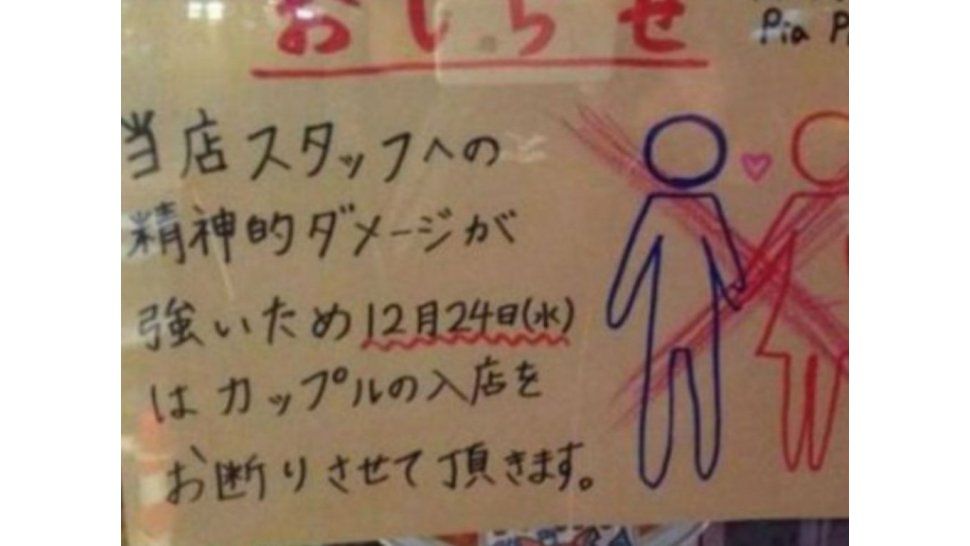 おしらせ
Pia
当店スタッフへの
精神的ダメージが
強いため12月24日(水)
はカップルの入店を
お断りさせて頂きます。